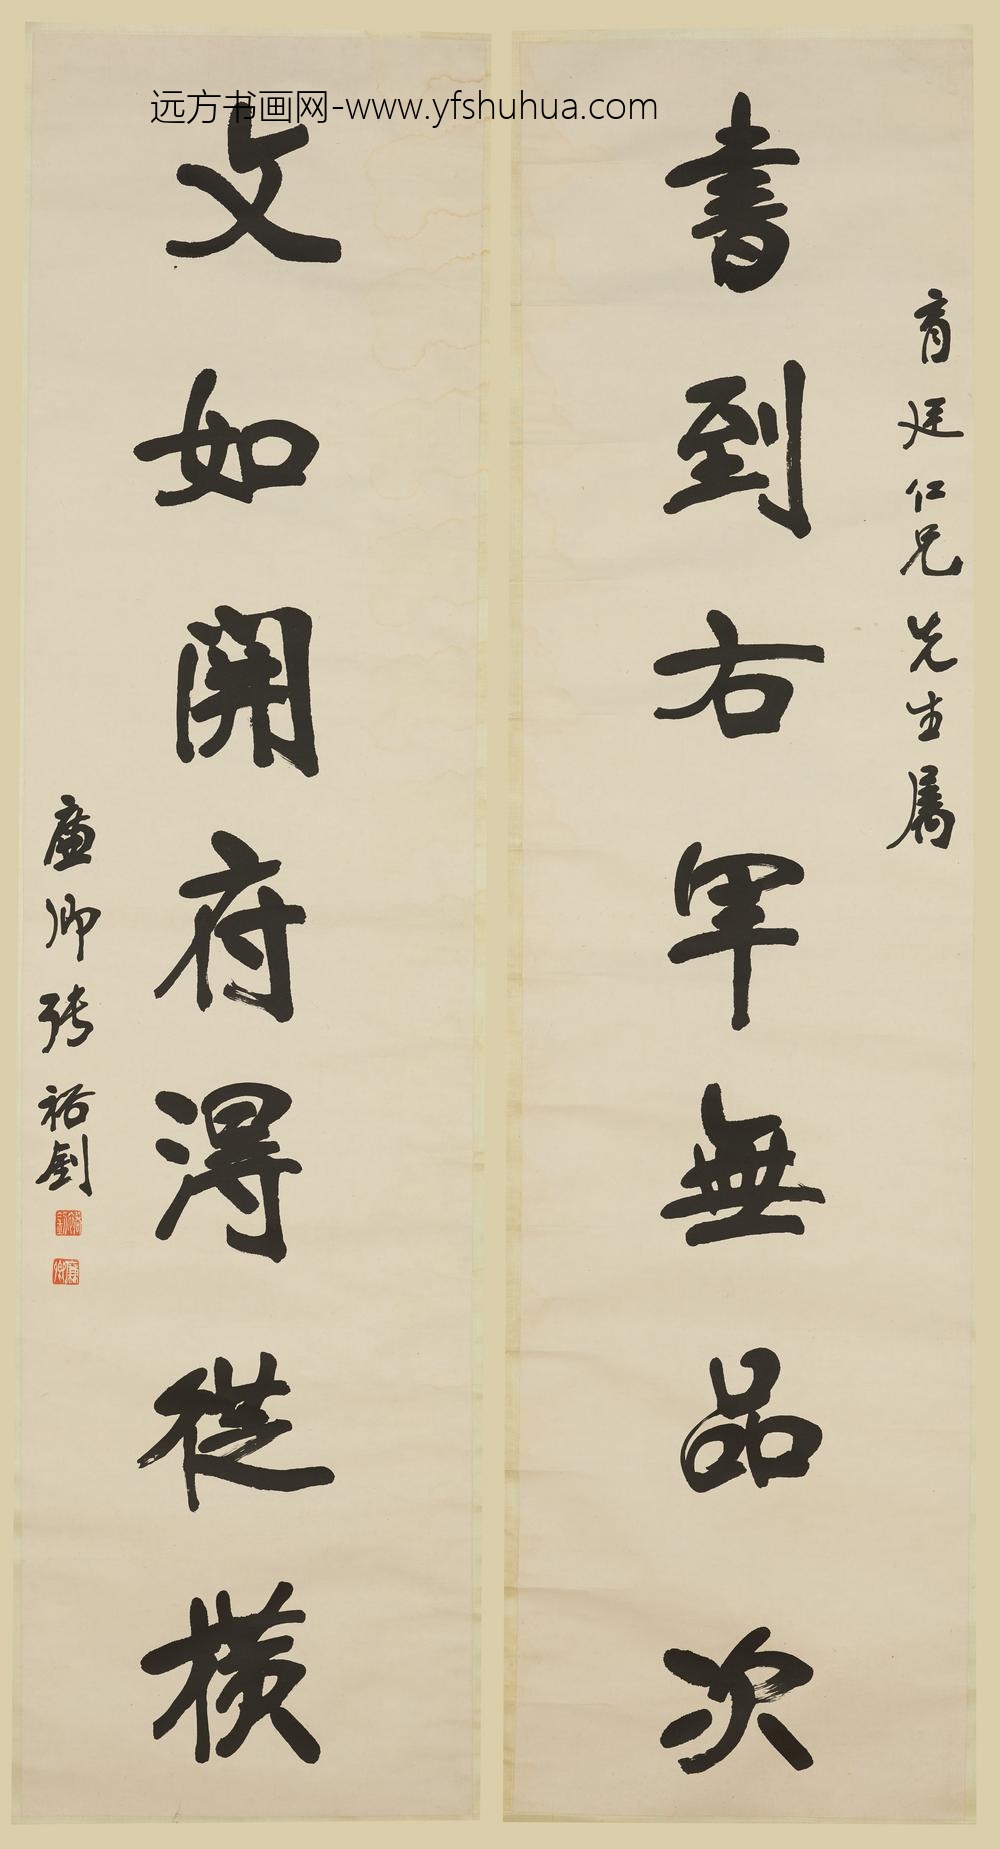 远方书画网-www.yfshuhua.com
育廷仁兄先生屬
書到右軍無品次
文如開府得從橫
廉卿張裕釗